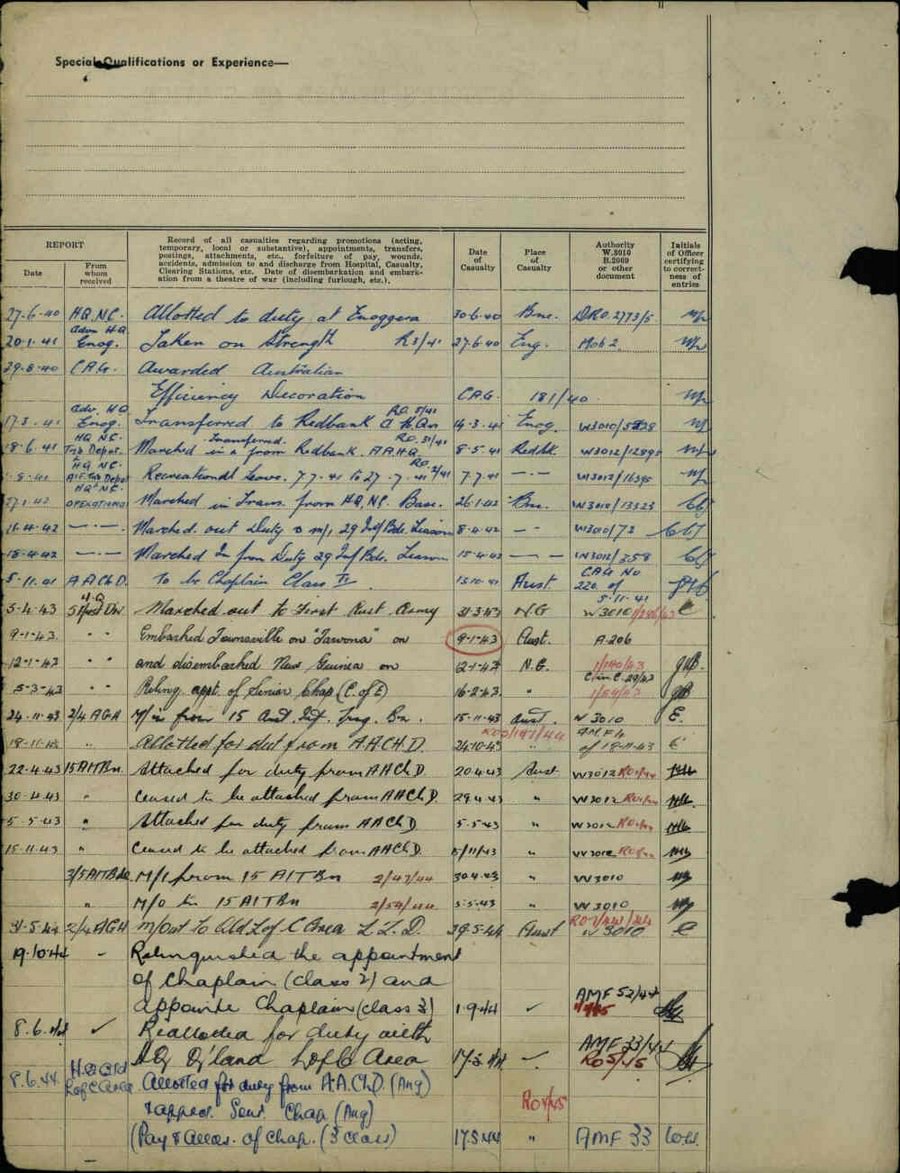 Special Qualifications or Experience—
REPORT
Date
From whom received
Record of all casualties regarding promotions (acting,
temporary, local or substantive), appointments, transfers,
postings, attachments, etc., forfeiture of pay, wounds,
accidents, admission to and discharge from Hospital, Casualty,
Clearing Stations, etc. Date of disembarkation and embark-
ation from a theatre of war (including furlough, etc.).
Date of Casualty
Place of Casualty
Authority W.3010 B.2069 or other document
Initials of Officer certifying to correct-ness of entries
27-6-40 H.Q. N.C. Allotted to duty at Enoggera 30-6-40 Bne. D.R.O. 2773/5
Adm HQ
20-1-41 Enog. Taken on Strength R3/41 27-6-40 Eng. Mob 2.
29-8-40 C.A.G. Awarded Australian
Efficiency Decoration C.A.G. 181/40
Adv. H.Q. R.O. 5/41
17-3-41 Enog. Transferred to Redbank 14-3-41 Enog.
HQ NC. Transferred. R.O. 31/41
18-6-41 Marched in from Redbank. A.A.H.Q. 8-5-41 Redbk. W3012/12895
HQ NC. R.O.
8-41 Recreational Leave. 7-7-41 to 27-7-41 7-7-41 — W3012/16395
HQ NC.
27-1-42 OPERATIONS Marched in Trans. from H.Q. N.C. Base. 26-1-42 Bne. W3010/13523
16-4-42 — . — Marched out Duty 29 Inf Bde. Liaison 8-4-42 — W3010/72
18-4-42 — . — Marched In from Duty 29 Inf Bde. Liaison 15-4-42 — W3012/258
5-11-41 A A Ch D. To be Chaplain Class IV 13-10-41 Aust. CAG No 220 of 5-11-41
H.Q.
5-4-43 5 Aust Div Marched out to First Aust. Army 31-3-43 N G W3010
9-1-43. " " Embarked Townsville on "Taroona" on 9-1-43 Aust. A.206
12-1-43 " " and disembarked New Guinea on 12-1-43 N.G. 1/140/43
5-3-43 " " Relinq. appt. of Senior Chap (C. of E) 16-2-43 " C in C 29/43 1/59/43
24-11-43 2/4 AGH M/in from 15 Aust. Inf. Trg. Bn. 15-11-43 Aust. W 3010 E.
18-11-43 " Allotted for dut from A.A.CH.D. 24-10-43 " of 18-11-43 E
22-4-43 15 AITBn. Attached for duty from AAChD. 20-4-43 Aust W3012
30-4-43 " Ceased to be attached from AAChD. 29-4-43 " W3012
5-5-43 " Attached for duty from AAChD 5-5-43 " W3012
15-11-43 " Ceased to be attached from AAChD. 15/11/43 " W3012
3/5 AITBde M/I from 15 AITBn 2/47/44 30-4-43 " W3010
" M/O to 15 AITBn 2/59/44 5-5-43 " W3010
31-5-44 2/4 AGH M/Out to Qld L of C Area L.L.D. 29-5-44 Aust W 3010 E
19-10-44 " Relinquished the appointment
of Chaplain (class 2) and
appointe Chaplain (class 3) 1-9-44 ✓ AMF 52/44
8.6.44 ✓ Reallotted for duty with
HQ Q'land L of C Area 17-5-44 ✓ AMF 33/44 RO 5/45
8.6.44 H.Q. Qld L of C Area Allotted for duty from A.A.Ch.D. (Ang)
& apptd. Senr. Chap (Ang) RO 4/45
(Pay & Allces. of Chap. (3 class) 17.5.44 " AMF 33